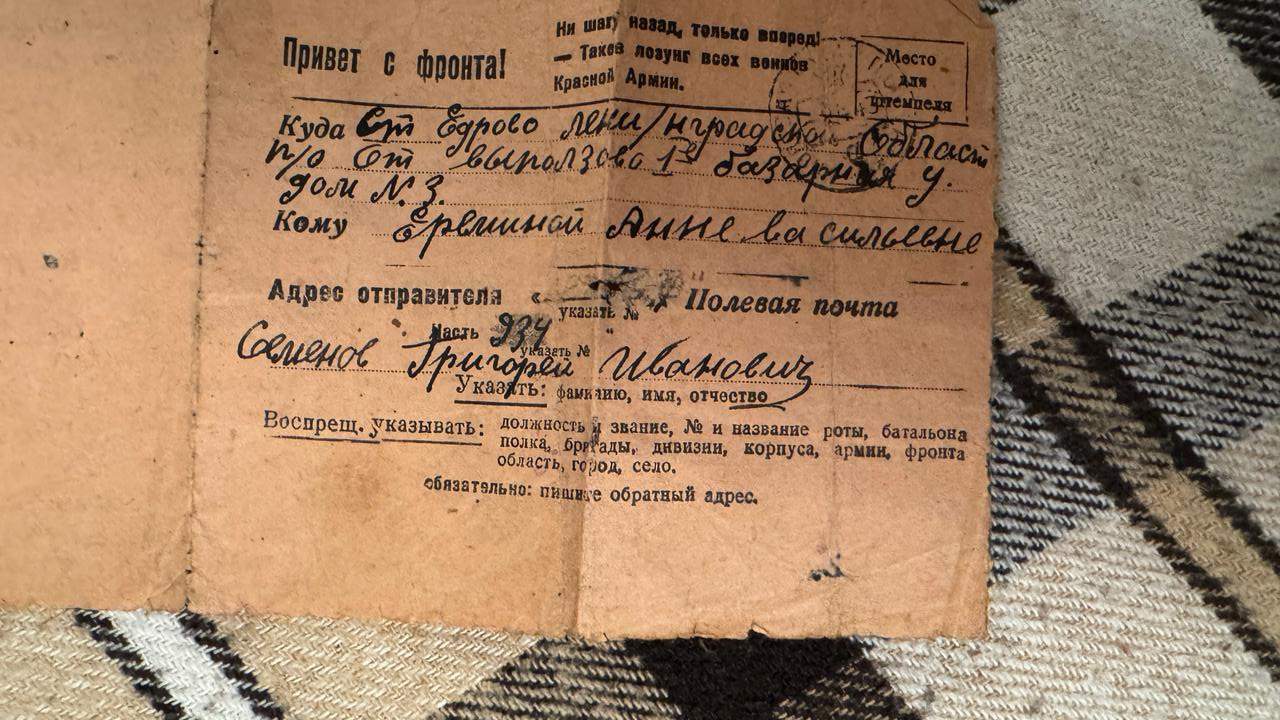 Привет с фронта!
Ни шагу назад, только вперед!
— Таков лозунг всех воинов
Красной Армии.
Место
для
штемпеля
Куда Ст Едрово лени/нградской Област
п/о Ст выползово 1я базарная у.
дом N. 3.
Кому Ереминой Анне васильевне
Адрес отправителя « » Полевая почта
указать №
Часть 934 "
указать №
Семенов Григорей Иванович
Указать: фамилию, имя, отчество
Воспрещ. указывать: должность и звание, № и название роты, батальона
полка, бригады, дивизии, корпуса, армии, фронта
область, город, село.
обязательно: пишите обратный адрес.